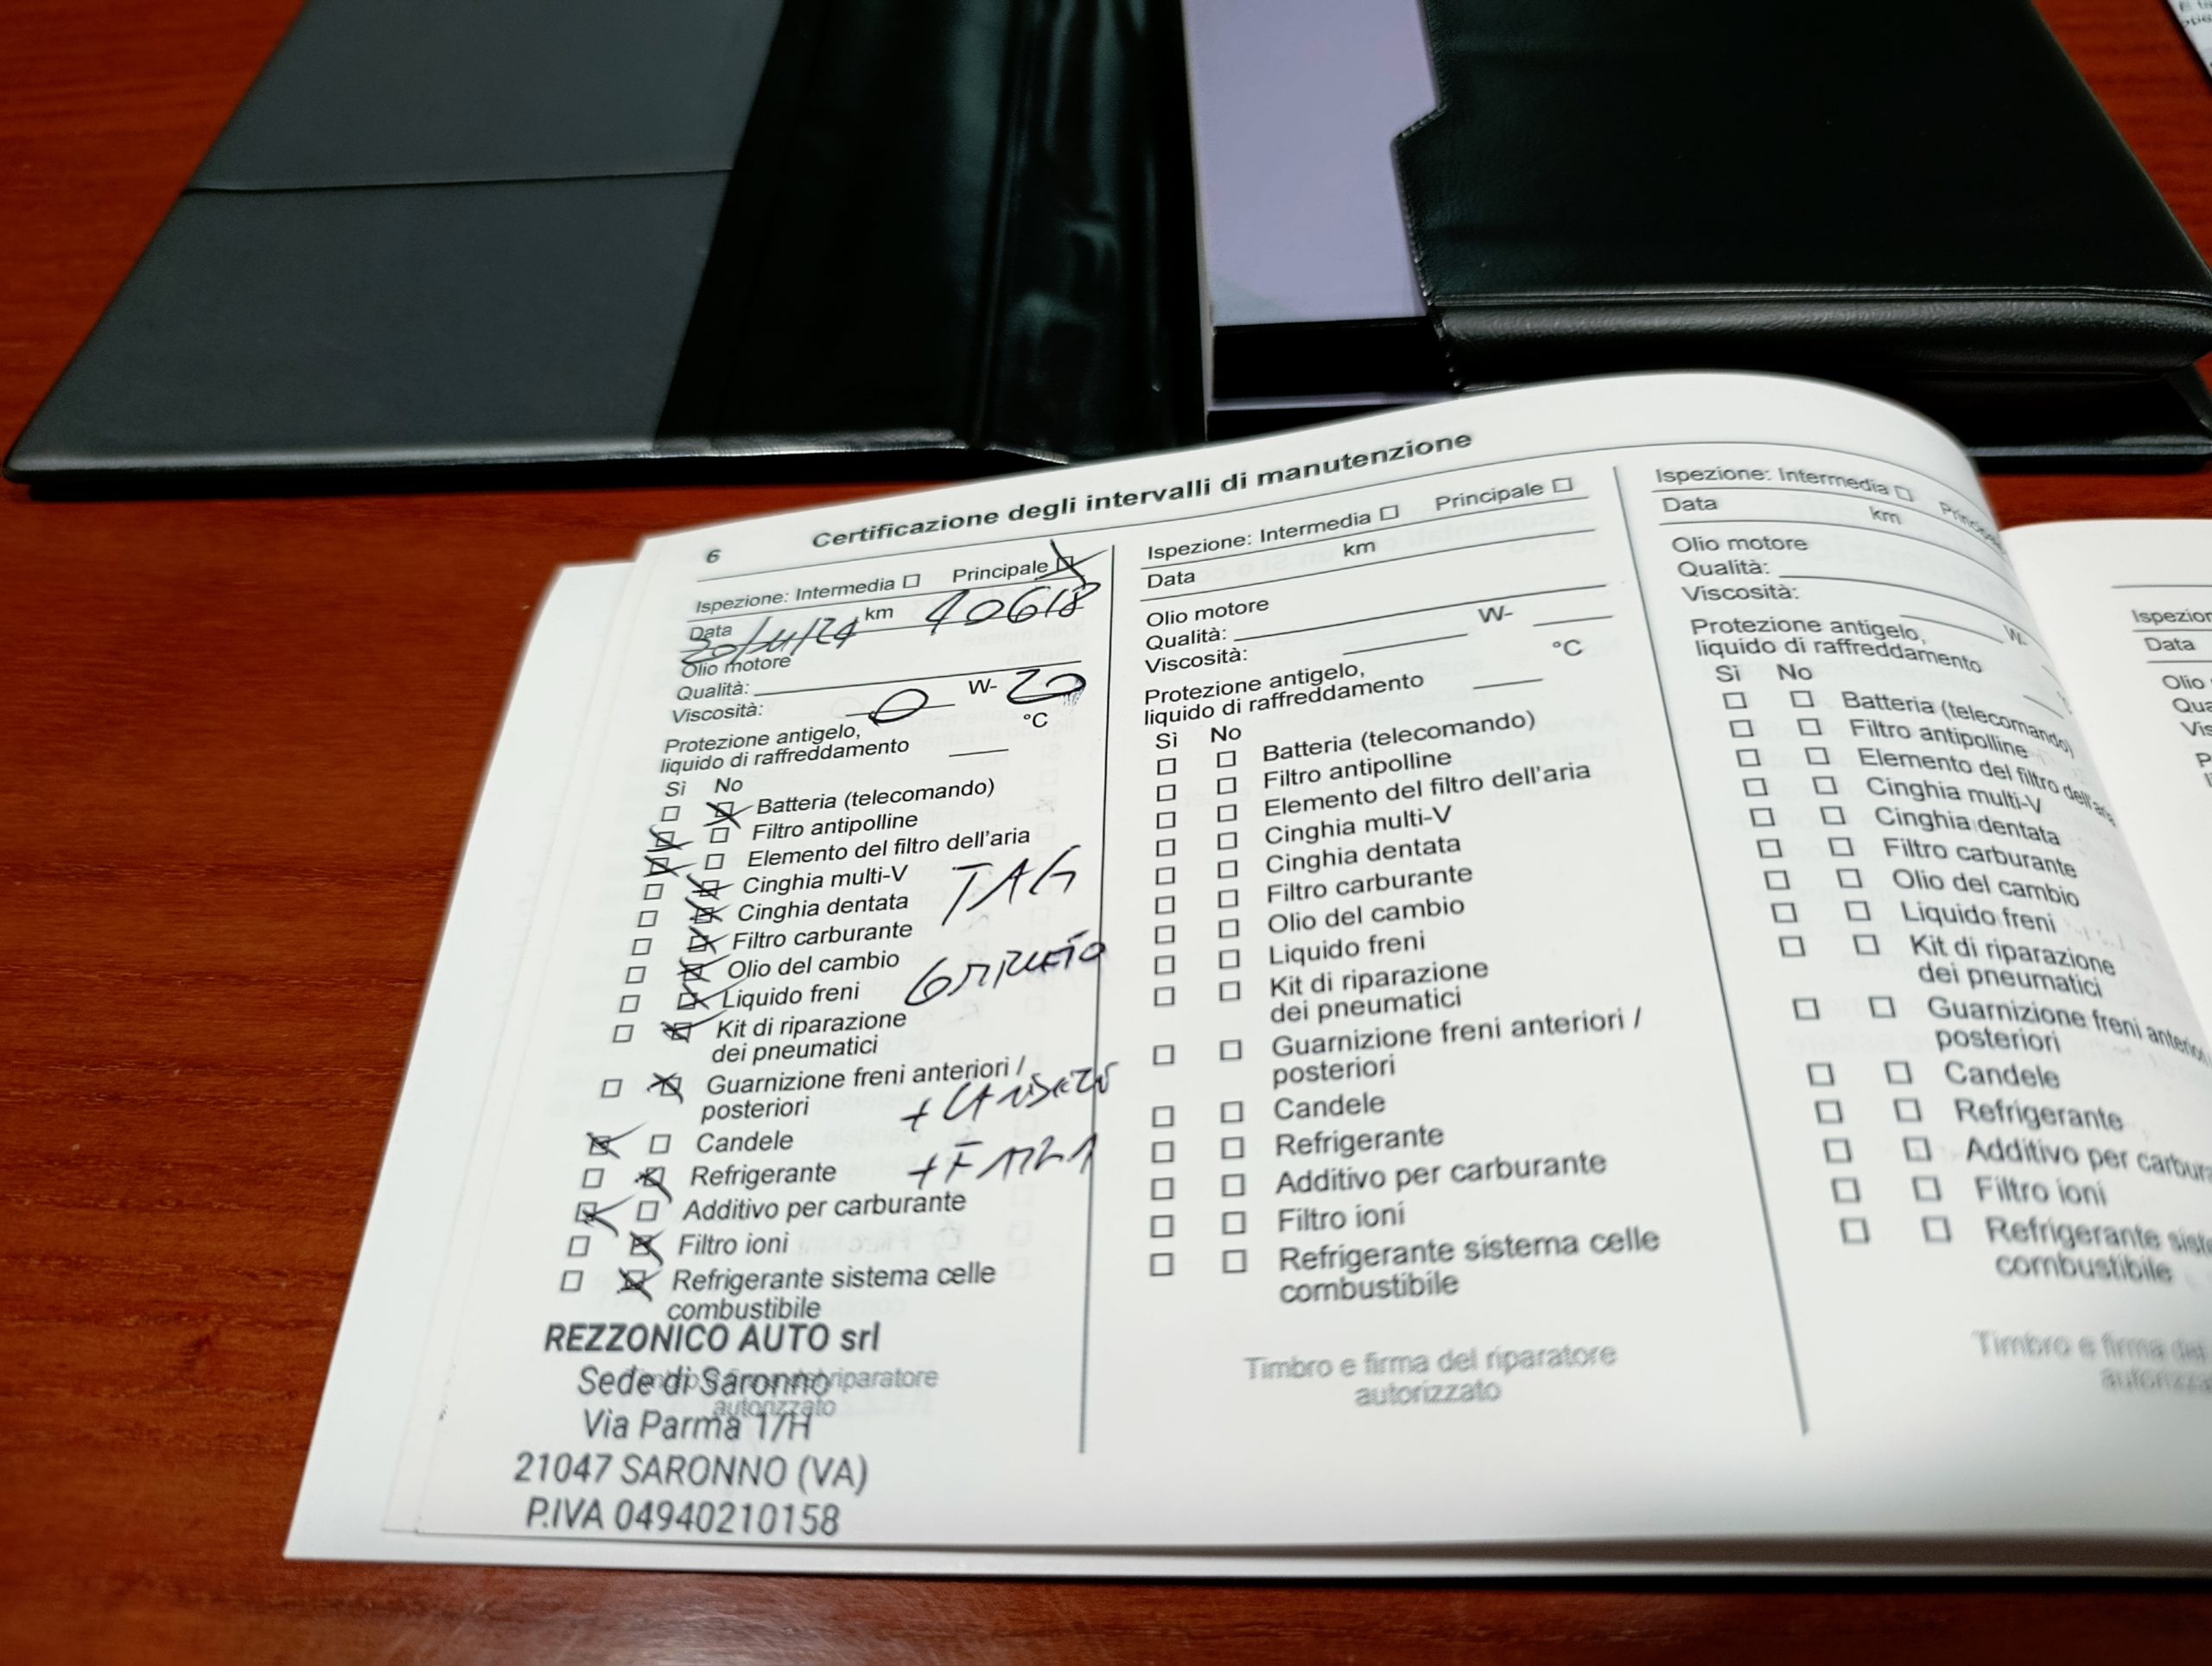 6
Certificazione degli intervalli di manutenzione
Ispezione: Intermedia ☐ Principale ☒
Data 30/11/24 km 40618
Olio motore
Qualità:
Viscosità: 0 W- 20
Protezione antigelo,
liquido di raffreddamento °C
Sì No
☐ ☒ Batteria (telecomando)
☒ ☐ Filtro antipolline
☒ ☐ Elemento del filtro dell'aria
☐ ☒ Cinghia multi-V
☐ ☒ Cinghia dentata
TAG
☐ ☒ Filtro carburante
☐ ☒ Olio del cambio
☐ ☒ Liquido freni
☐ ☒ Kit di riparazione
dei pneumatici
☐ ☒ Guarnizione freni anteriori /
posteriori
☒ ☐ Candele
☐ ☒ Refrigerante
☒ ☐ Additivo per carburante
☐ ☒ Filtro ioni
☐ ☒ Refrigerante sistema celle
combustibile
Timbro e firma del riparatore
autorizzato
REZZONICO AUTO srl
Sede di Saronno
Via Parma 17/H
21047 SARONNO (VA)
P.IVA 04940210158
Ispezione: Intermedia ☐ Principale ☐
Data km
Olio motore
Qualità:
Viscosità: W-
Protezione antigelo,
liquido di raffreddamento °C
Sì No
☐ ☐ Batteria (telecomando)
☐ ☐ Filtro antipolline
☐ ☐ Elemento del filtro dell'aria
☐ ☐ Cinghia multi-V
☐ ☐ Cinghia dentata
☐ ☐ Filtro carburante
☐ ☐ Olio del cambio
☐ ☐ Liquido freni
☐ ☐ Kit di riparazione
dei pneumatici
☐ ☐ Guarnizione freni anteriori /
posteriori
☐ ☐ Candele
☐ ☐ Refrigerante
☐ ☐ Additivo per carburante
☐ ☐ Filtro ioni
☐ ☐ Refrigerante sistema celle
combustibile
Timbro e firma del riparatore
autorizzato
Ispezione: Intermedia ☐
Data km
Olio motore
Qualità:
Viscosità: W-
Protezione antigelo,
liquido di raffreddamento
Sì No
☐ ☐ Batteria (telecomando)
☐ ☐ Filtro antipolline
☐ ☐ Elemento del filtro dell'aria
☐ ☐ Cinghia multi-V
☐ ☐ Cinghia dentata
☐ ☐ Filtro carburante
☐ ☐ Olio del cambio
☐ ☐ Liquido freni
☐ ☐ Kit di riparazione
dei pneumatici
☐ ☐ Guarnizione freni
posteriori
☐ ☐ Candele
☐ ☐ Refrigerante
☐ ☐ Additivo per
☐ ☐ Filtro ioni
☐ ☐ Refrigerante
combustibile
Timbro e firma del
Data